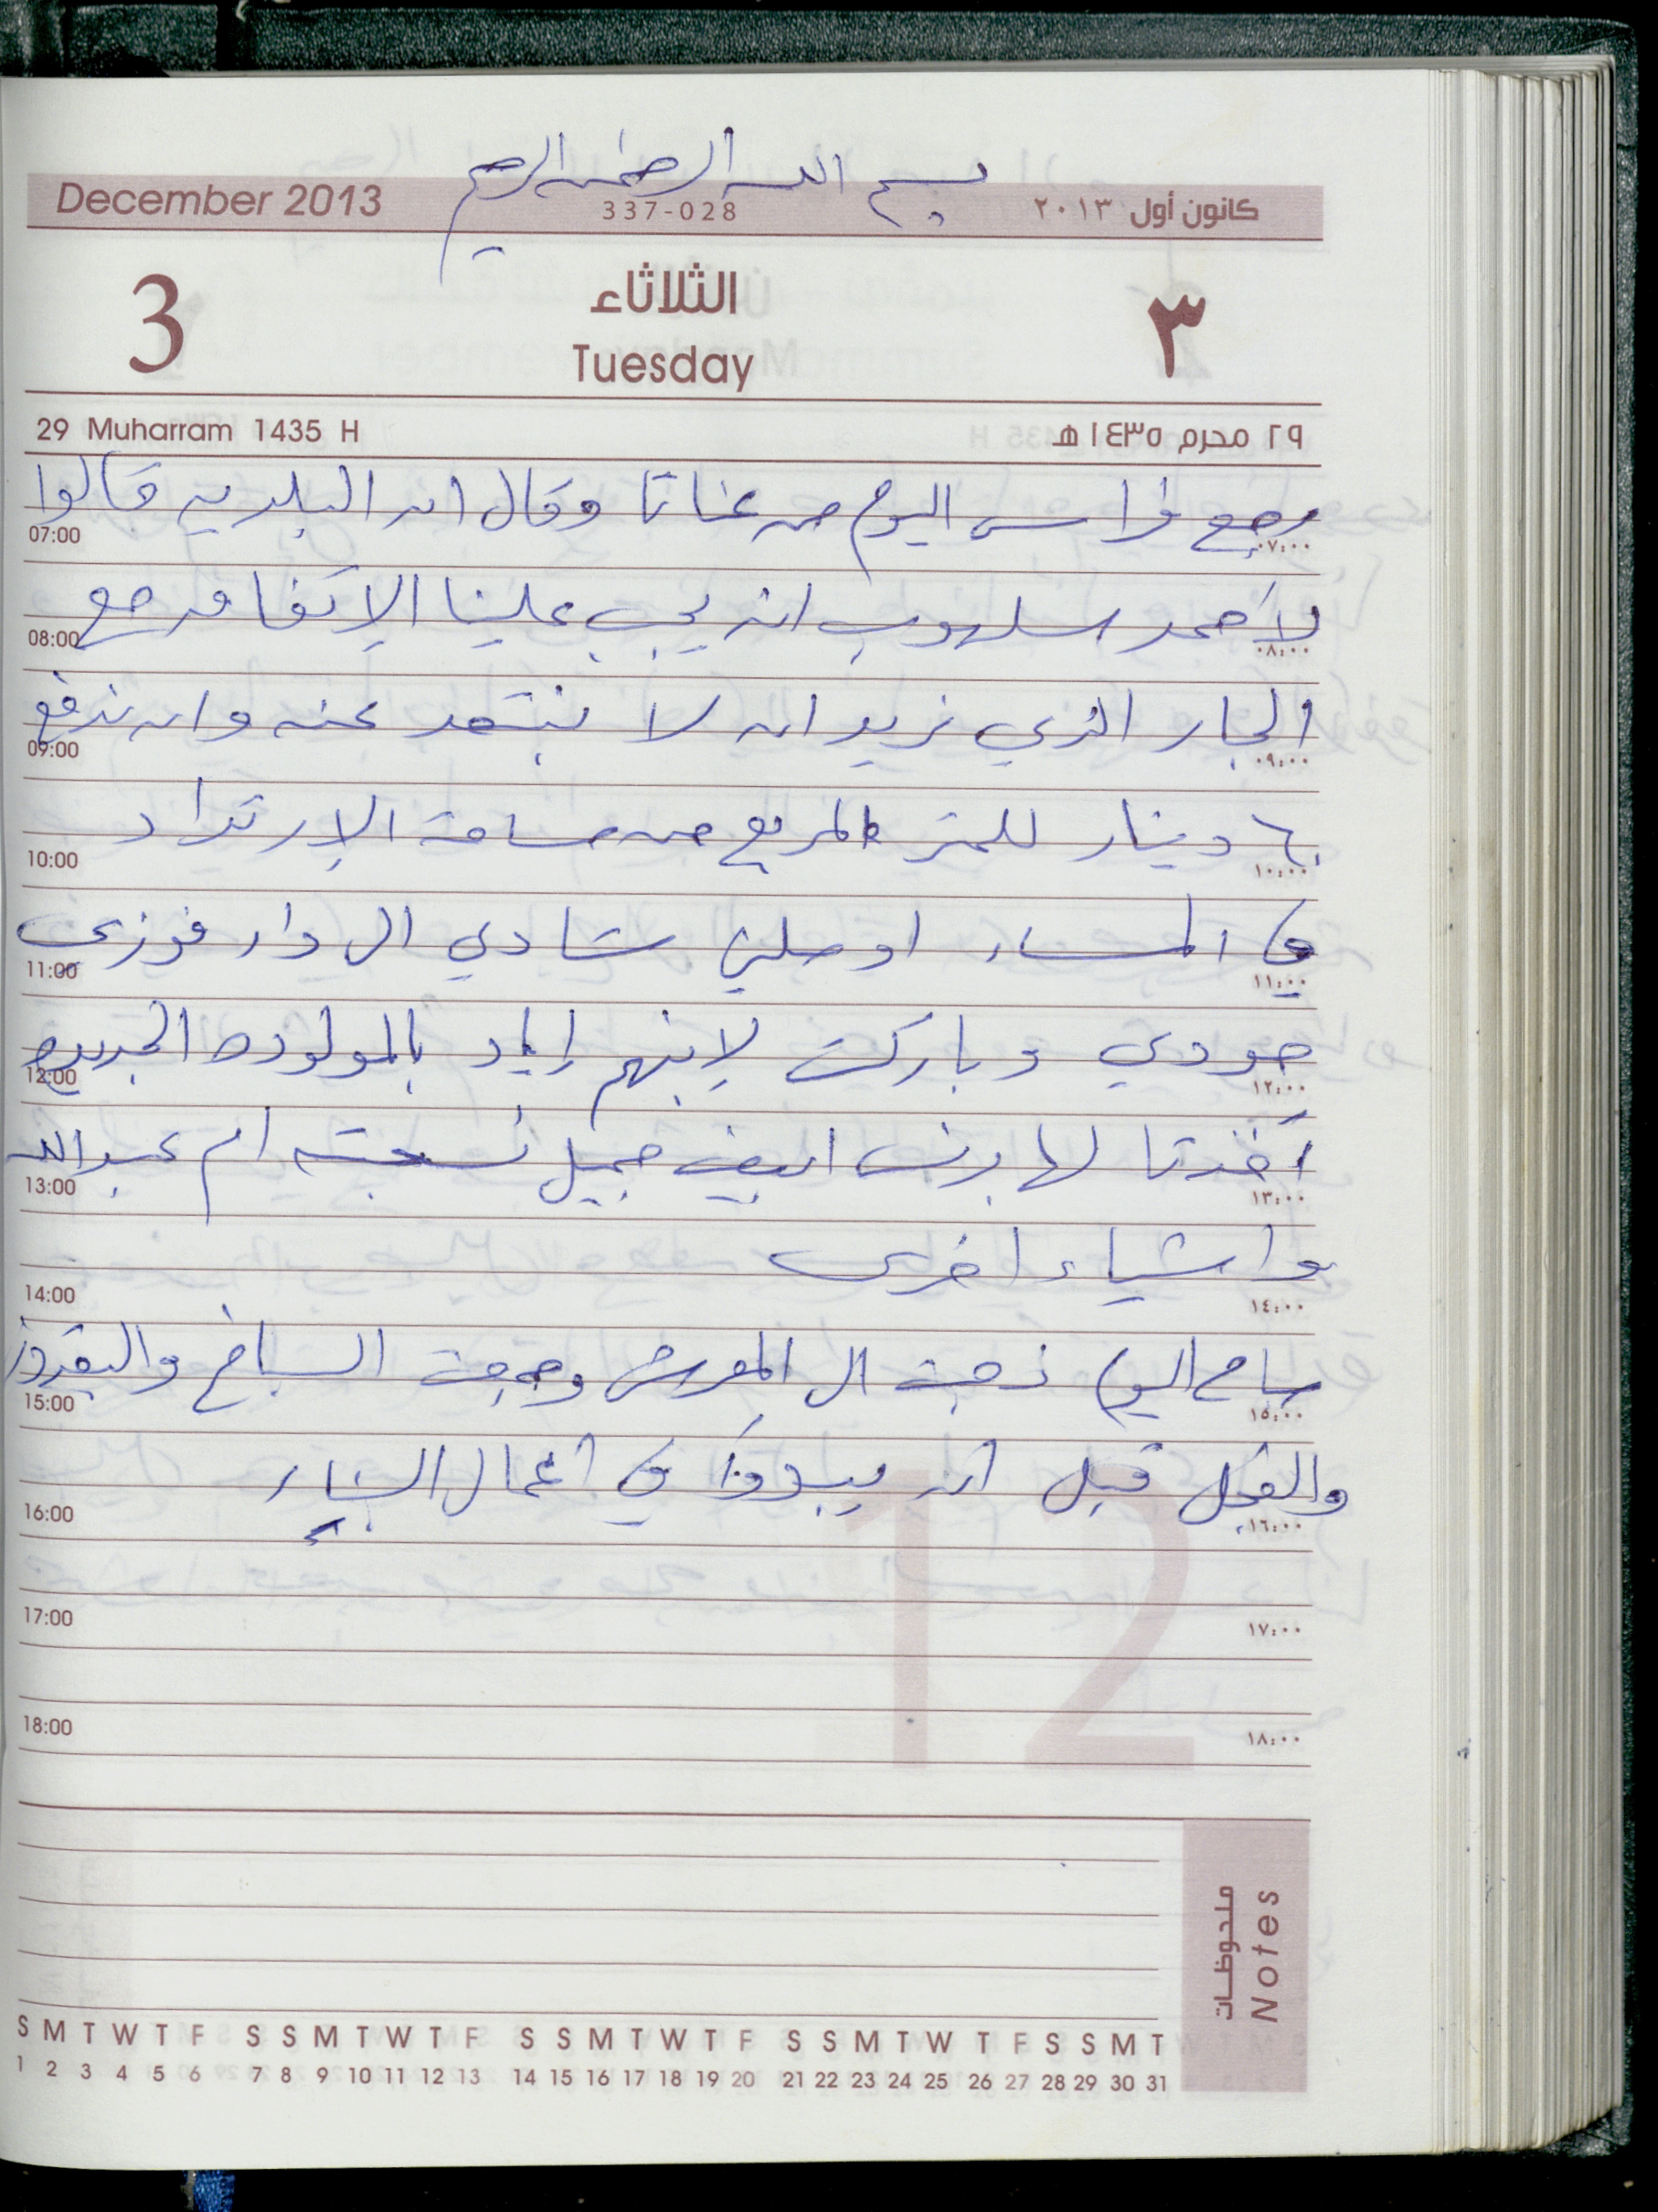 بسم الله الرحمن الرحيم
December 2013 337-028 كانون أول ٢٠١٣
3 الثلاثاء ٣
Tuesday
29 Muharram 1435 H ٢٩ محرم ١٤٣٥ هـ
رجع فراس اليوم من عناتا وقال ان البلديه قالوا
07:00 ٠٧:٠٠
لأحمد سلهوب انه يجب علينا الإتفاق مع
08:00 ٠٨:٠٠
الجار الذي نريد ان لا نبتعد عنه وان ندفع
09:00 ٠٩:٠٠
٦٠ دينار للمتر المربع من مسافة الإرتداد
10:00 ١٠:٠٠
في المساء اوصلني شادي الى دار فوزي
11:00 ١١:٠٠
حودي وباركت لإبنهم إياد بالمولوده الجديده
12:00 ١٢:٠٠
أخذنا لها برنس ابيض جميل نسجته ام عبدالله
13:00 ١٣:٠٠
واشياء اخرى
14:00 ١٤:٠٠
صباح اليوم ذهبت الى المعرش وجمعت السبانخ والبقدونس
15:00 ١٥:٠٠
والفجل قبل ان يبدوأ في أعمال البناء
16:00 ١٦:٠٠
17:00 ١٧:٠٠
18:00 ١٨:٠٠
12
ملحوظات
Notes
S M T W T F S S M T W T F S S M T W T F S S M T W T F S S M T
1 2 3 4 5 6 7 8 9 10 11 12 13 14 15 16 17 18 19 20 21 22 23 24 25 26 27 28 29 30 31